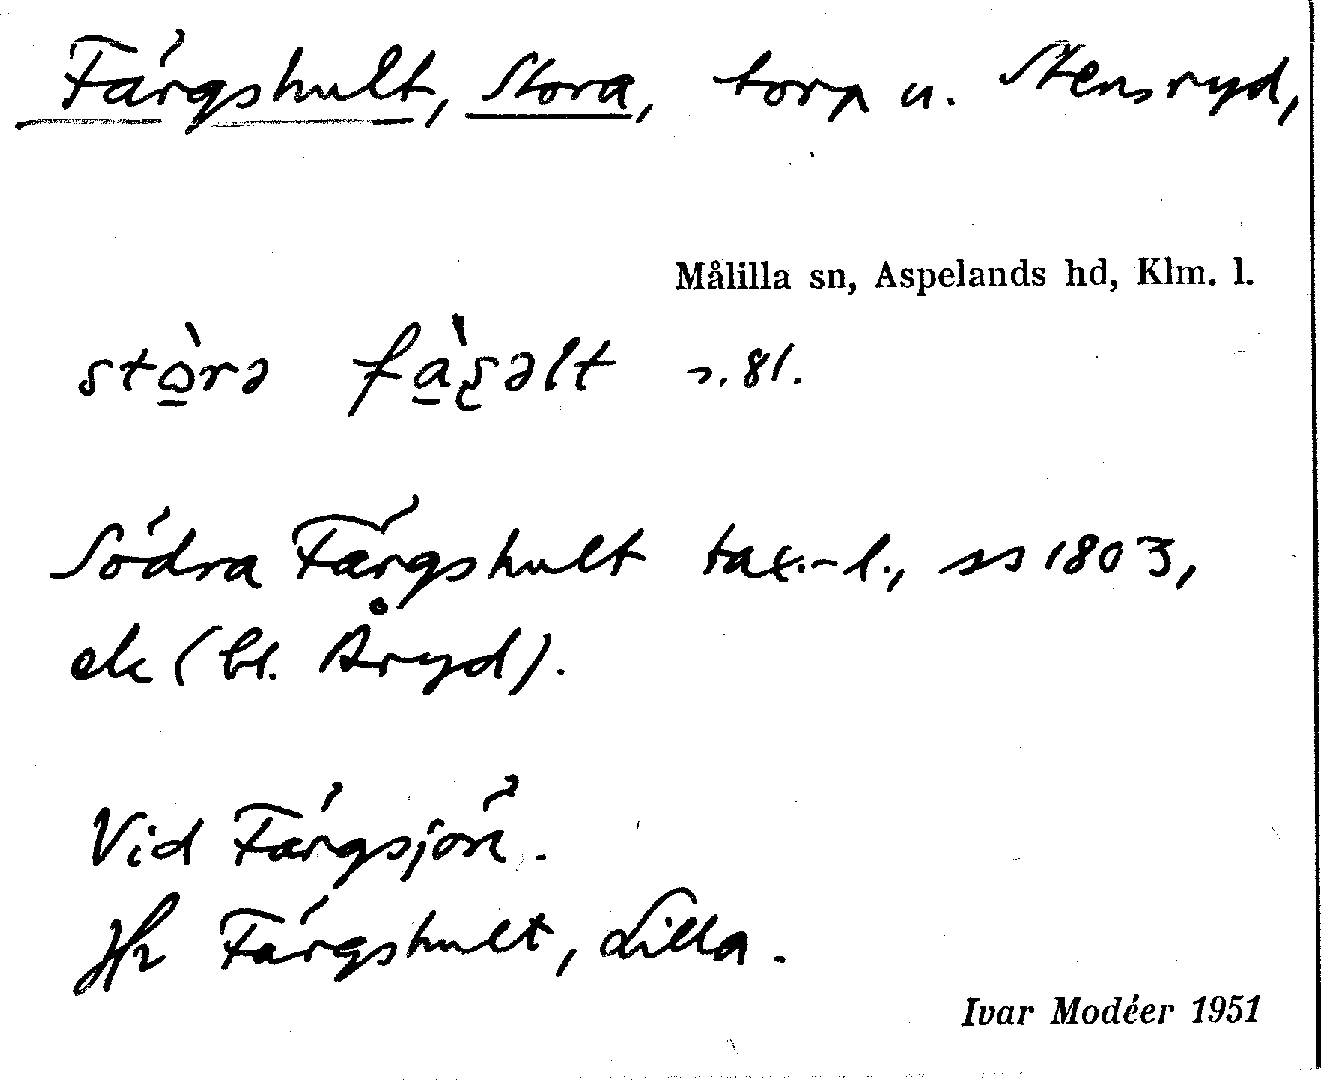 Färgshult, Stora, torp u. Stensryd,
Målilla sn, Aspelands hd, Klm. l.
stòrə fàʂəlt s. 81.
Södra Färgshult tax.-l., ss 1803,
ek (bl. Åryd).
Vid Färgsjön.
Jfr Färgshult, Lilla.
Ivar Modéer 1951